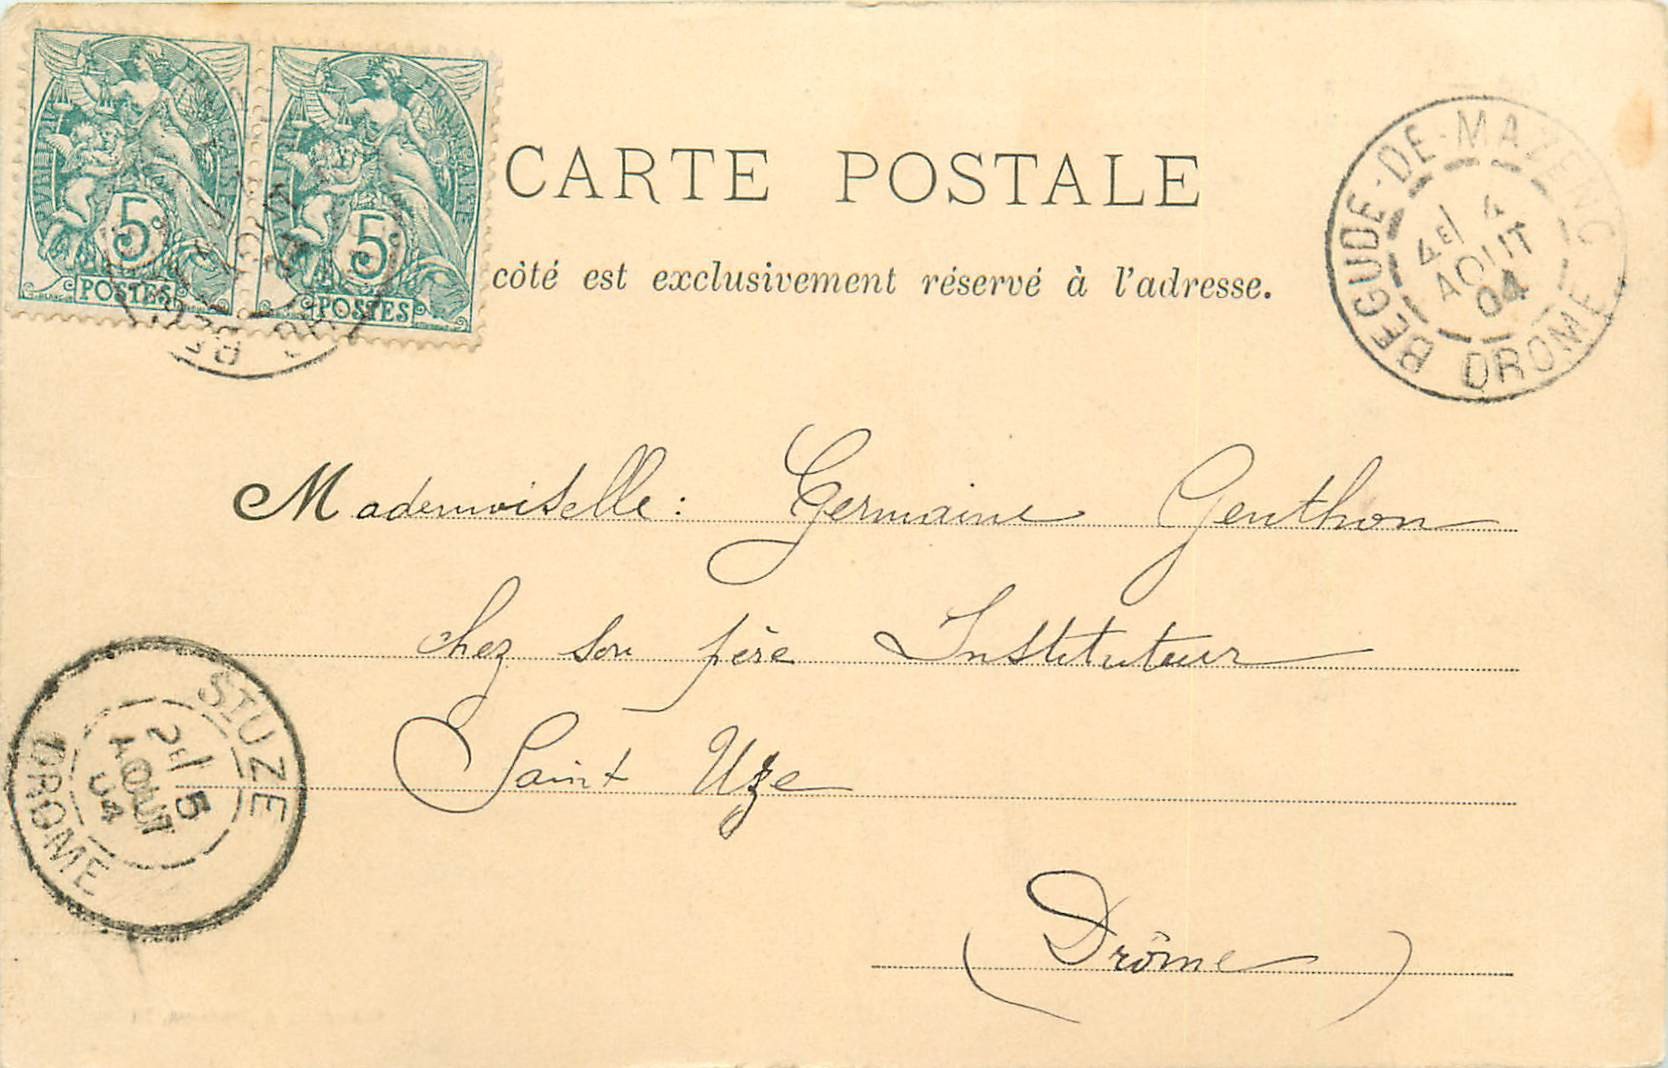 RÉPUBLIQUE FRANÇAISE
5c
POSTES
FRANÇAISE
5c
POSTES
CARTE POSTALE
côté est exclusivement réservé à l'adresse.
BEGUDE-DE-MAZENC
4E/ 4
AOUT
04
DROME
Mademoiselle: Germaine Genthon
chez son père Instituteur
Saint Uze
(Drôme)
ST UZE
2E/ 5
AOUT
04
DROME